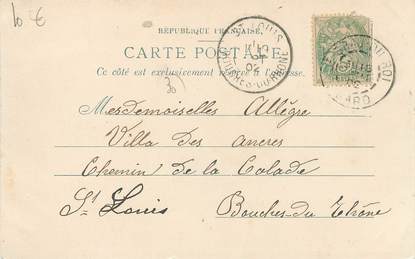 10 €
RÉPUBLIQUE FRANÇAISE
CARTE POSTALE
Ce côté est exclusivement réservé à l'adresse.
ST LOUIS
BOUCHES-DU-RHONE
DU ROI
GARD
Mesdemoiselles Allègre
Villa des ancres
Chemin de la Calade
St Louis Bouches du Rhône